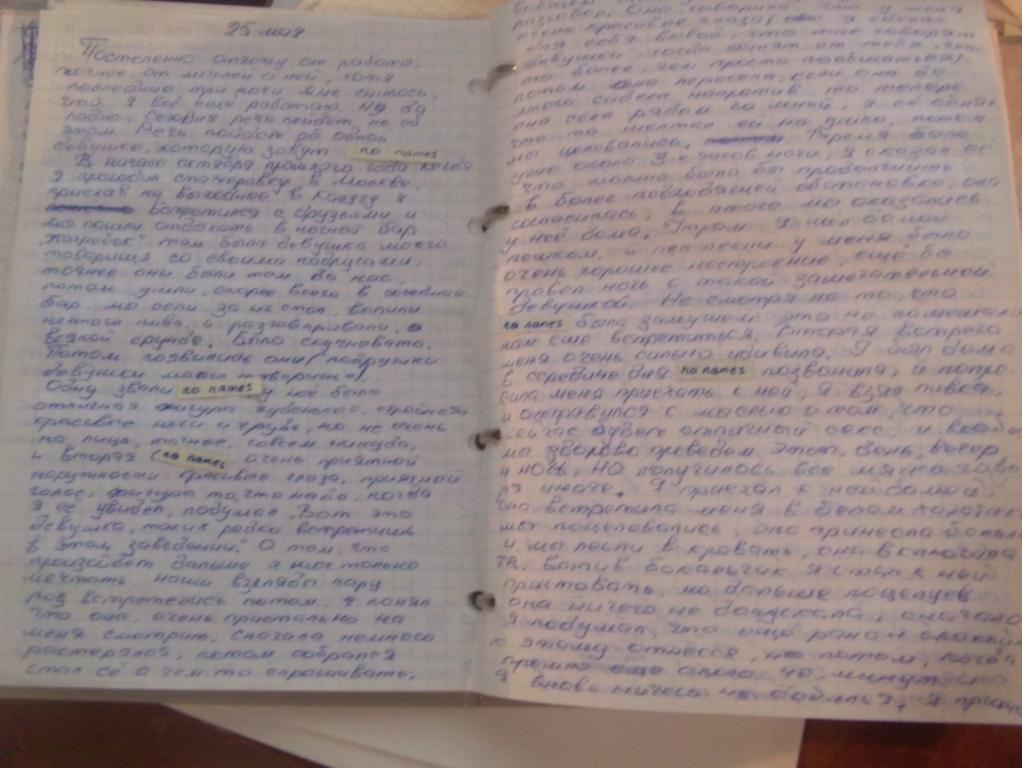 25 мая
Постепенно отхожу от работы,
точнее от мыслей о ней, хотя
последние три ночи мне снилось,
что я всё ещё работаю. Ну да
ладно, сегодня речь пойдет не об
этом. Речь пойдет об одной
девушке, которую зовут no names
В начале октября прошлого года когда
я проходил стажировку в Москве,
приехав на выходные в Калугу я
встретился с друзьями и
мы пошли отдохать в ночной бар
"Погребок" там была девушка моего
товарища со своими подругами,
точнее они были там до нас
потом ушли, скорее всего в соседний
бар. мы сели за их стол, выпили
немного пива, и разговаривали, о
всякой ерунде. Было скучновато.
Потом появились они (подружки
девушки моего товарища).
Одну звали no names у неё была
отличная фигура, стройная
красивые ноги и грудь, но не очень
на лицо, точнее, совсем никуда,
и вторая (no names очень приятной
наружности красивые глаза, приятный
голос, фигура то, что надо, когда
я её увидел, подумал "Вот это
девушка, таких редко встретишь
в этом заведении." О том, что
произойдет дальше я мог только
мечтать наши взгляды пару
раз встретились потом, я понял
что она, очень пристально на
меня смотрит, сначала немного
растерялся, потом собрался
стал её о чем то спрашивать,
разговор. Она говорила что у меня
очень красивые глаза, я сделал
для себя вывод, что так говорят
девушки, когда хотят от тебя, чего
то более, чем просто пообщаться)
потом она пересела, если она до
этого сидела напротив, то теперь
она села рядом со мной, я её обнял
что то шептал ей на ушко, потом
мы целовались. Время было
уже около 3 х часов ночи, я сказал ей
что можно было бы продолжить
в более подходящей обстановке, она
согласилась, в итоге мы оказались
у неё дома. Утром я шёл домой
пешком, и пел песни у меня было
очень хорошее настроение, ещё бы
провел ночь с такой замечательной
девушкой. Не смотря на то, что
no names была замужем это не помешало
нам еще встретиться. Вторая встреча
меня очень сильно удивила. Я был дома
в середине дня no names позвонила, и попро-
сила меня приехать к ней, я взял пивка,
и отправился с мыслью о том, что
сейчас будет отличный секс, и вообще
мы здорово проведем этот, день, вечер
и ночь, но получилось все
иначе. Я приехал к ней домой,
она встретила меня в белом халатике
мы поцеловались, она принесла бокалы
и мы легли в кровать, она включила
ТВ. Выпив бокальчик я стал к ней
приставать, но дальше поцелуев
она ничего не допускала, сначала
я подумал, что ещё рано и спокойно
к этому отнесся, но потом, когда
прошло еще около 40 минут
я вновь ничего не добился, я